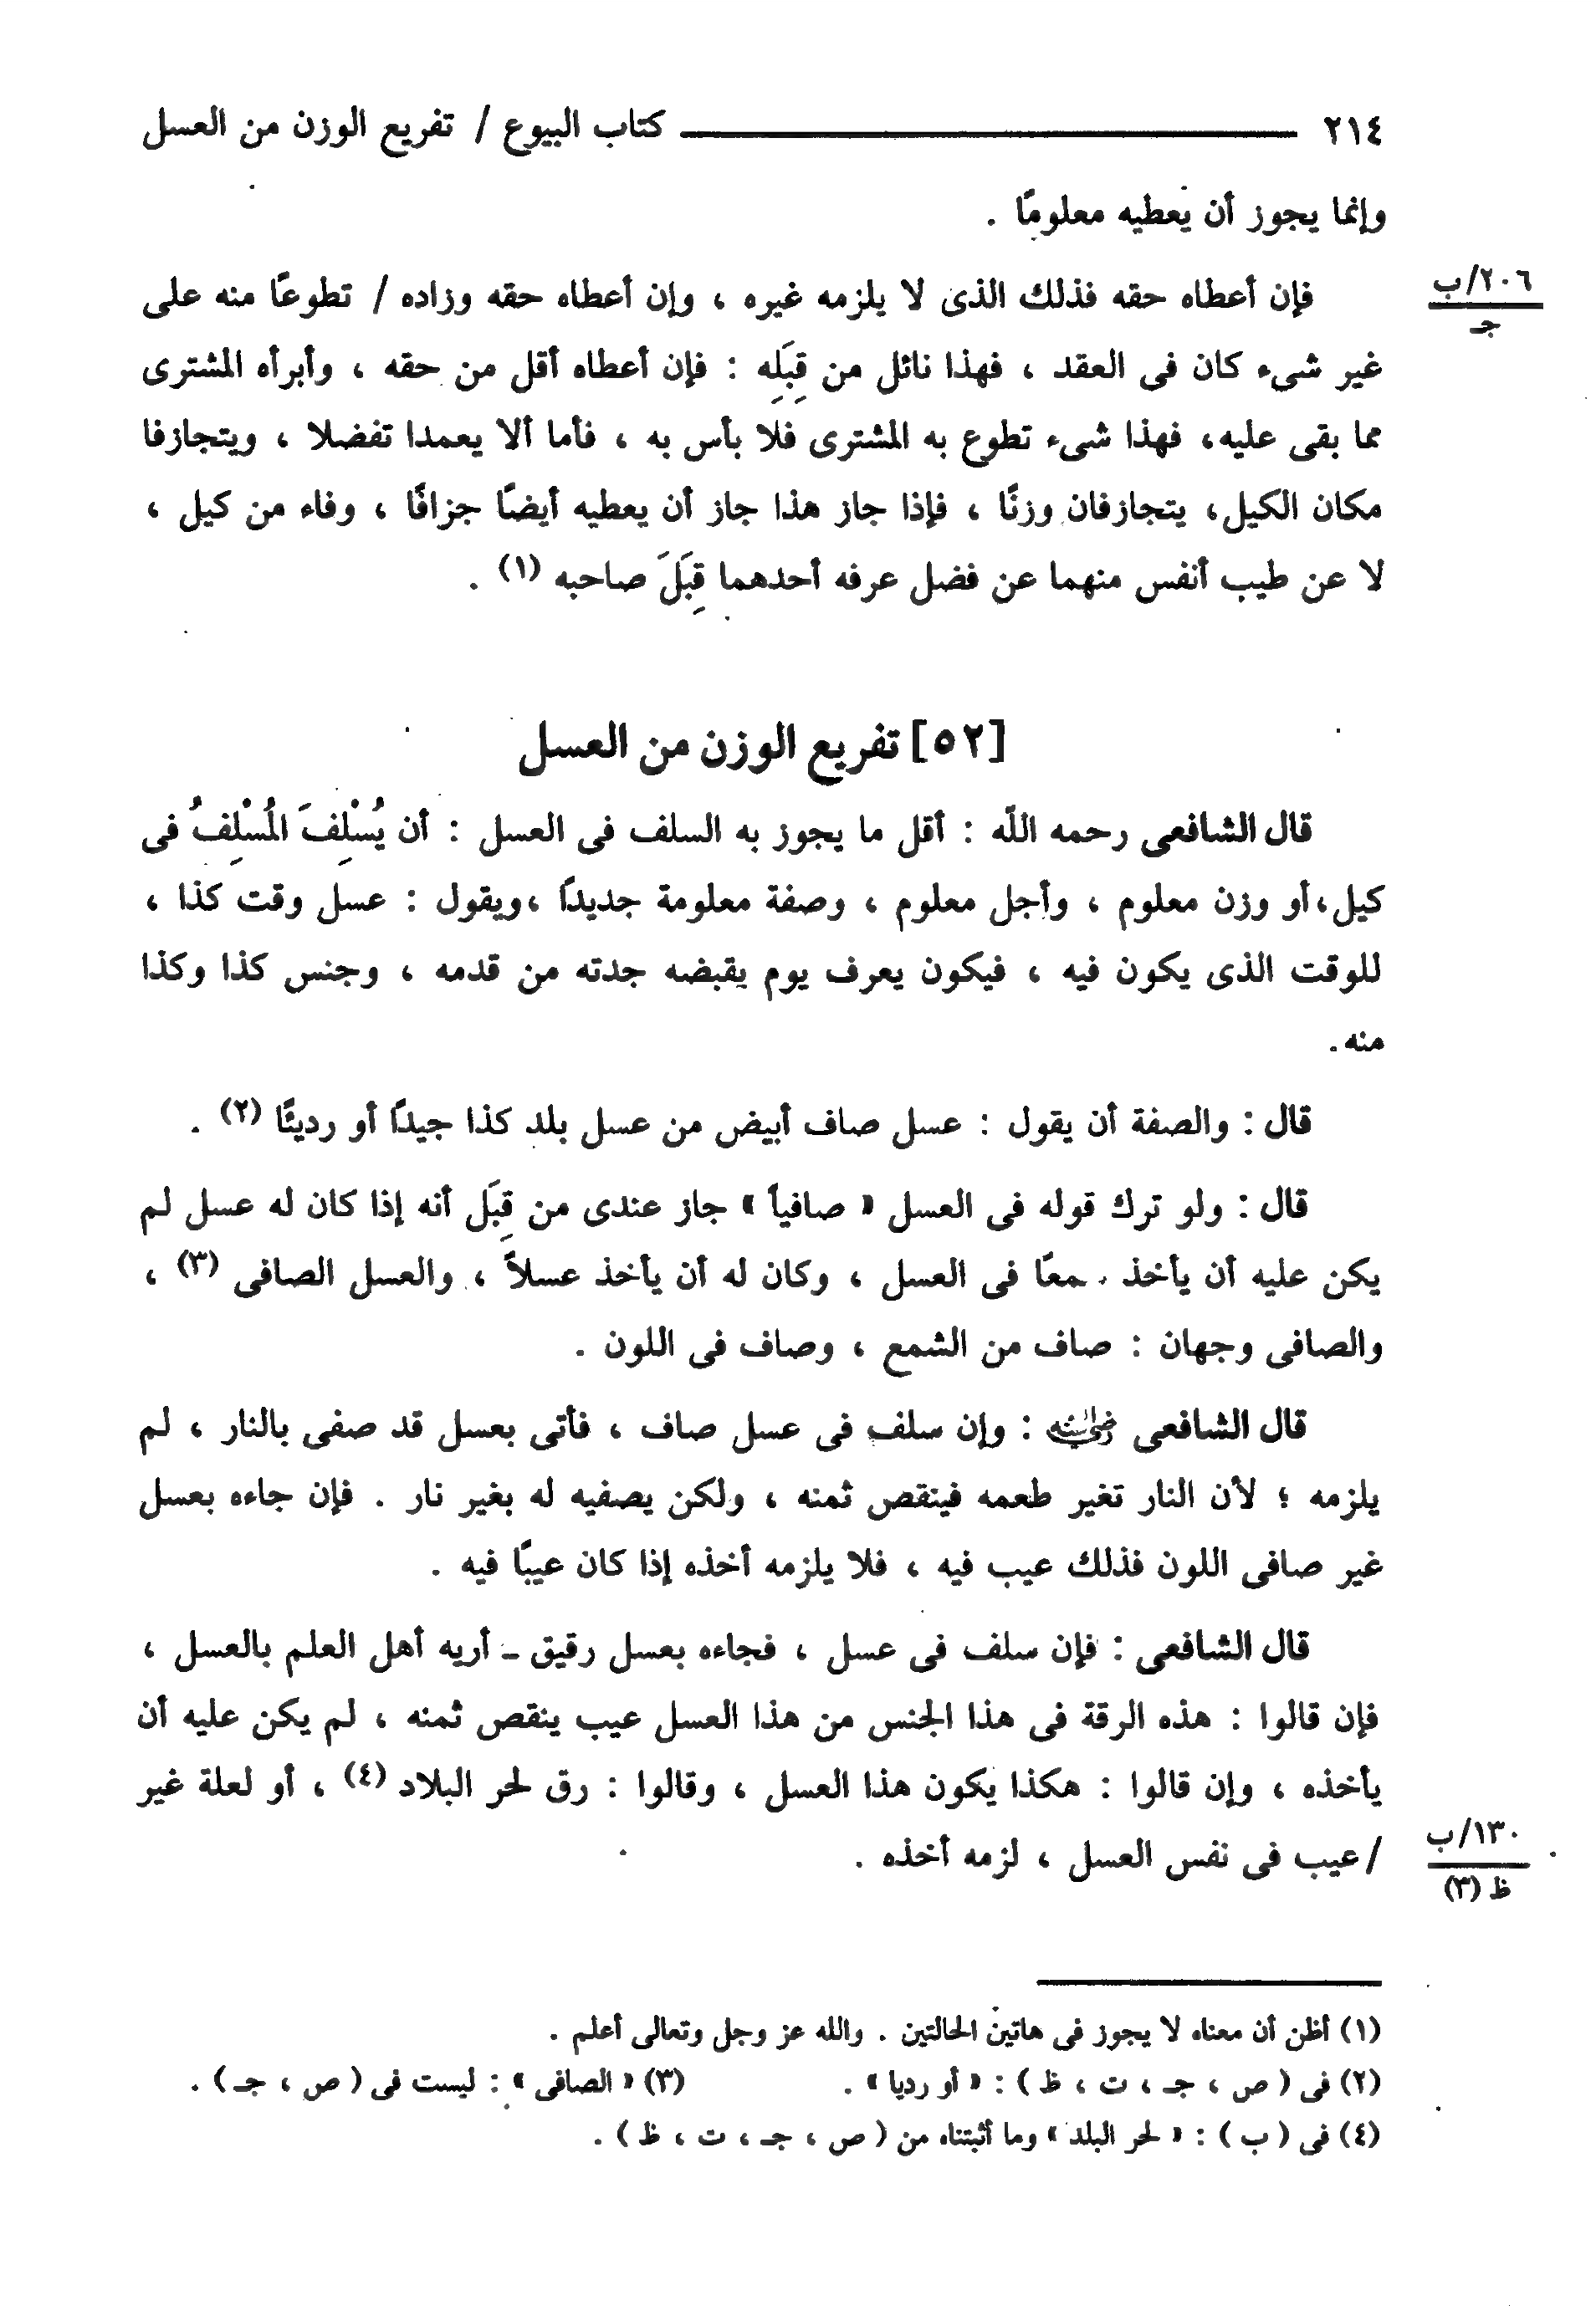 ٢١٤ كتاب البيوع / تفريع الوزن من العسل
وإنما يجوز أن يعطيه معلومًا .
٢٠٦/ب
جـ
فإن أعطاه حقه فذلك الذى لا يلزمه غيره ، وإن أعطاه حقه وزاده / تطوعًا منه على
غير شىء كان فى العقد ، فهذا نائل من قِبَلِه : فإن أعطاه أقل من حقه ، وأبرأه المشترى
مما بقى عليه، فهذا شىء تطوع به المشترى فلا بأس به ، فأما ألا يعمدا تفضلا ، ويتجازفا
مكان الكيل، يتجازفان وزنًا ، فإذا جاز هذا جاز أن يعطيه أيضًا جزافًا ، وفاء من كيل ،
لا عن طيب أنفس منهما عن فضل عرفه أحدهما قِبَلَ صاحبه (١) .
[٥٢] تفريع الوزن من العسل
قال الشافعى رحمه اللّه : أقل ما يجوز به السلف فى العسل : أن يُسْلِفَ المُسْلِفُ فى
كيل،أو وزن معلوم ، وأجل معلوم ، وصفة معلومة جديدًا ،ويقول : عسل وقت كذا ،
للوقت الذى يكون فيه ، فيكون يعرف يوم يقبضه جدته من قدمه ، وجنس كذا وكذا
منه.
قال : والصفة أن يقول : عسل صاف أبيض من عسل بلد كذا جيدًا أو رديئًا (٢) .
قال : ولو ترك قوله فى العسل « صافياً » جاز عندى من قِبَل أنه إذا كان له عسل لم
يكن عليه أن يأخذ شمعًا فى العسل ، وكان له أن يأخذ عسلاً ، والعسل الصافى (٣) ،
والصافى وجهان : صاف من الشمع ، وصاف فى اللون .
قال الشافعى رضي الله عنه : وإن سلف فى عسل صاف ، فأتى بعسل قد صفى بالنار ، لم
يلزمه ؛ لأن النار تغير طعمه فينقص ثمنه ، ولكن يصفيه له بغير نار . فإن جاءه بعسل
غير صافى اللون فذلك عيب فيه ، فلا يلزمه أخذه إذا كان عيبًا فيه .
قال الشافعى : فإن سلف فى عسل ، فجاءه بعسل رقيق ـ أريه أهل العلم بالعسل ،
فإن قالوا : هذه الرقة فى هذا الجنس من هذا العسل عيب ينقص ثمنه ، لم يكن عليه أن
يأخذه ، وإن قالوا : هكذا يكون هذا العسل ، وقالوا : رق لحر البلاد (٤) ، أو لعلة غير
١٣٠/ب
ظ (٣)
/ عيب فى نفس العسل ، لزمه أخذه .
(١) أظن أن معناه لا يجوز فى هاتين الحالتين . والله عز وجل وتعالى أعلم .
(٢) فى ( ص ، جـ ، ت ، ظ ) : « أو رديا » . (٣) « الصافى » : ليست فى ( ص ، جـ ) .
(٤) فى ( ب ) : « لحر البلد » وما أثبتناه من ( ص ، جـ ، ت ، ظ ) .